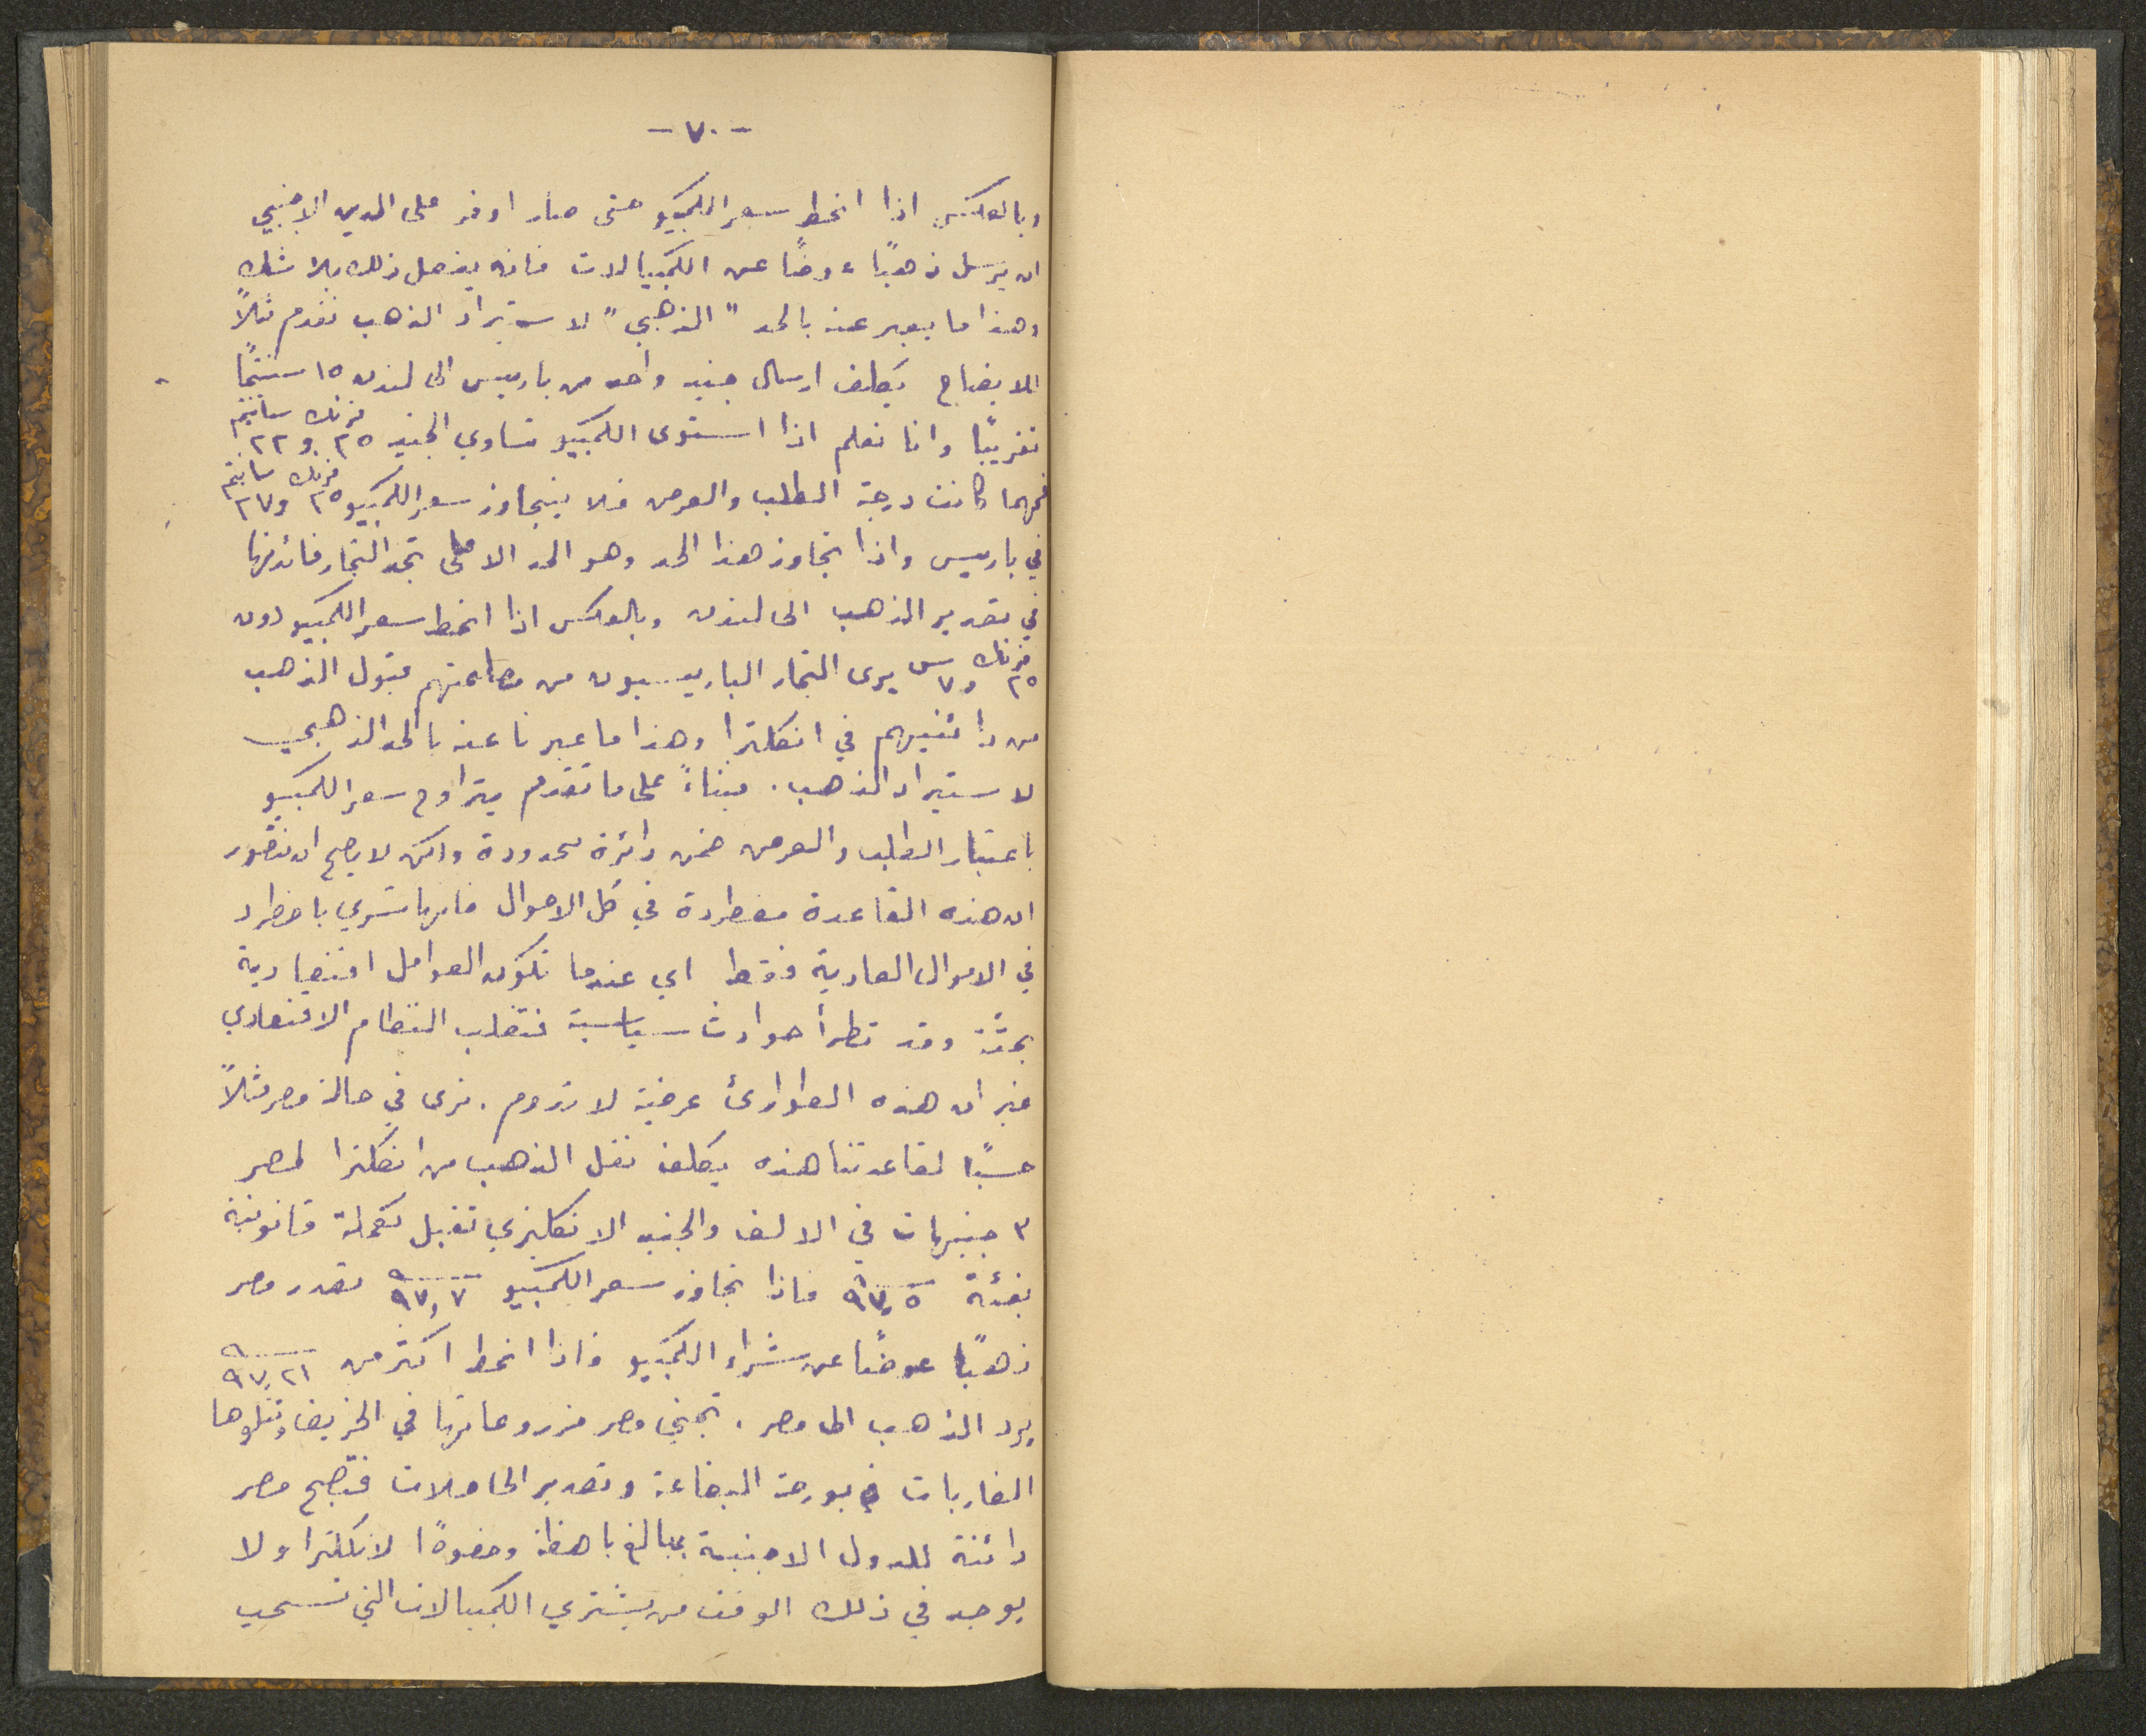 -٧٠-
وبالعكس اذا انحط سعر الكمبيو حتى صار اوفر على المدين الاجنبي
ان يرسل ذهبًا عوضًا عن الكمبيالات فانه يفعل ذلك بلا شك
وهذا ما يعبر عنه بالحد "الذهبي" لاستيراد الذهب نقدم مثلاً
للايضاح يكلف ارسال جنيه واحد من باريس الى لندن ١٥ سنتيمًا
تقريبًا وانا نعلم اذا استوى الكمبيو تساوي الجنيه ٢٥ فرنك و٢٢ سانتيم
فمهما كانت درجة الطلب والعرض فلا يتجاوز سعر الكمبيو ٢٥ فرنك و٣٧ سانتيم
في باريس واذا تجاوز هذا الحد وهو الحد الاعلى تجد التجار فائدتها
في تصدير الذهب الى لندن وبالعكس اذا انحط سعر الكمبيو دون
٢٥ فرنك و٧ س يرى التجار الباريسيون من مصلحتهم قبول الذهب
من دائنيهم في انكلترا وهذا ما عبرنا عنه بالحد الذهبي
لاستيراد الذهب. فبناءً على ما تقدم يتراوح سعر الكمبيو
باعتبار الطلب والعرض ضمن دائرة محدودة ولكن لا يصح ان نتصور
ان هذه القاعدة مضطردة في كل الاحوال فانها تسري باضطراد
في الاحوال العادية فقط اي عندما تكون العوامل اقتصادية
بحتة وقد تطرأ حوادث سياسية فتقلب النظام الاقتصادي
غير ان هذه الطوارئ عرضية لا تدوم. نرى في حالة مصر مثلاً
حسبًا لقاعدتنا هذه يكلف نقل الذهب من انكلترا لمصر
٣ جنيهات في الالف والجنيه الانكليزي تقبل كعملة قانونية
بفئة ٩٧,٥ فاذا تجاوز سعر الكمبيو ٩٧,٧ تصدر مصر
ذهبًا عوضًا عن شراء الكمبيو واذا انحط اكثر من ٩٧,٢١
يرد الذهب الى مصر. تجني مصر مزروعاتها في الخريف وتتلوها
المضاربات في بورصة البضاعة وتصدير الحاصلات فتصبح مصر
دائنة للدول الاجنبية بمبالغ باهظة وخصوصًا لانكلترا ولا
يوجد في ذلك الوقت من يشتري الكمبيالات التي تسحب